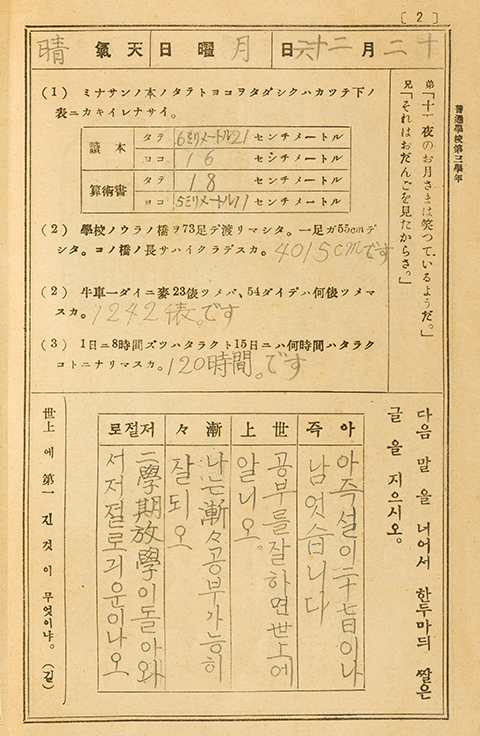 〔2〕
十二月二十六日 月曜日 天氣 晴
普通學校第三學年
弟「十一夜のお月さまは笑つているようだ。」
兄「それはおだんごを見たからさ。」
(1) ミナサンノ本ノタテトヨコヲタダシクハカツテ下ノ
表ニカキイレナサイ。
讀本 タテ 6ミリメートル21 センチメートル
ヨコ 16 センチメートル
算術書 タテ 18 センチメートル
ヨコ 5ミリメートル11 センチメートル
(2) 學校ノウラノ橋ヲ73足デ渡リマシタ。一足ガ55cmデ
シタ。コノ橋ノ長サハイクラデスカ。4015cmです
(2) 牛車一ダイニ麥23俵ツメバ、54ダイデハ何俵ツメマ
スカ。1242俵。です
(3) 1日ニ8時間ズツハタラクト15日ニハ何時間ハタラク
コトニナリマスカ。120時間。です
다음 말을 너어서 한두마듸 짤은
글을 지으시오。
아즉
아즉설이二十七日이나
남엇습니다
世上
공부를잘하면世上에
알니오。
漸々
나는漸々공부가능히
잘되오
저절로
二學期放學이돌아와
서저절로긔운이나오
世上에 第一 긴것이 무엇이냐。(길)